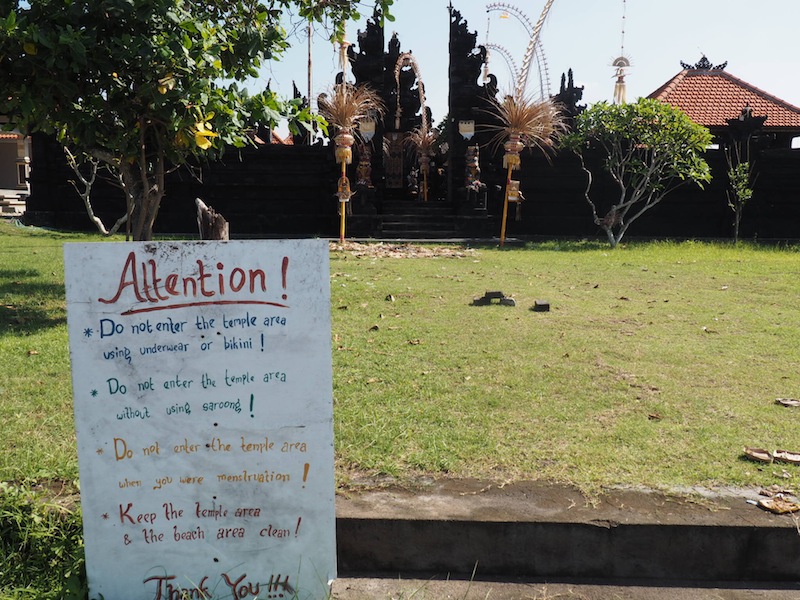 Attention!
* Do not enter the temple area
using underwear or bikini!
* Do not enter the temple area
without using saroong!
* Do not enter the temple area
when you were menstruation!
* Keep the temple area
& the beach area clean!
Thank You!!!